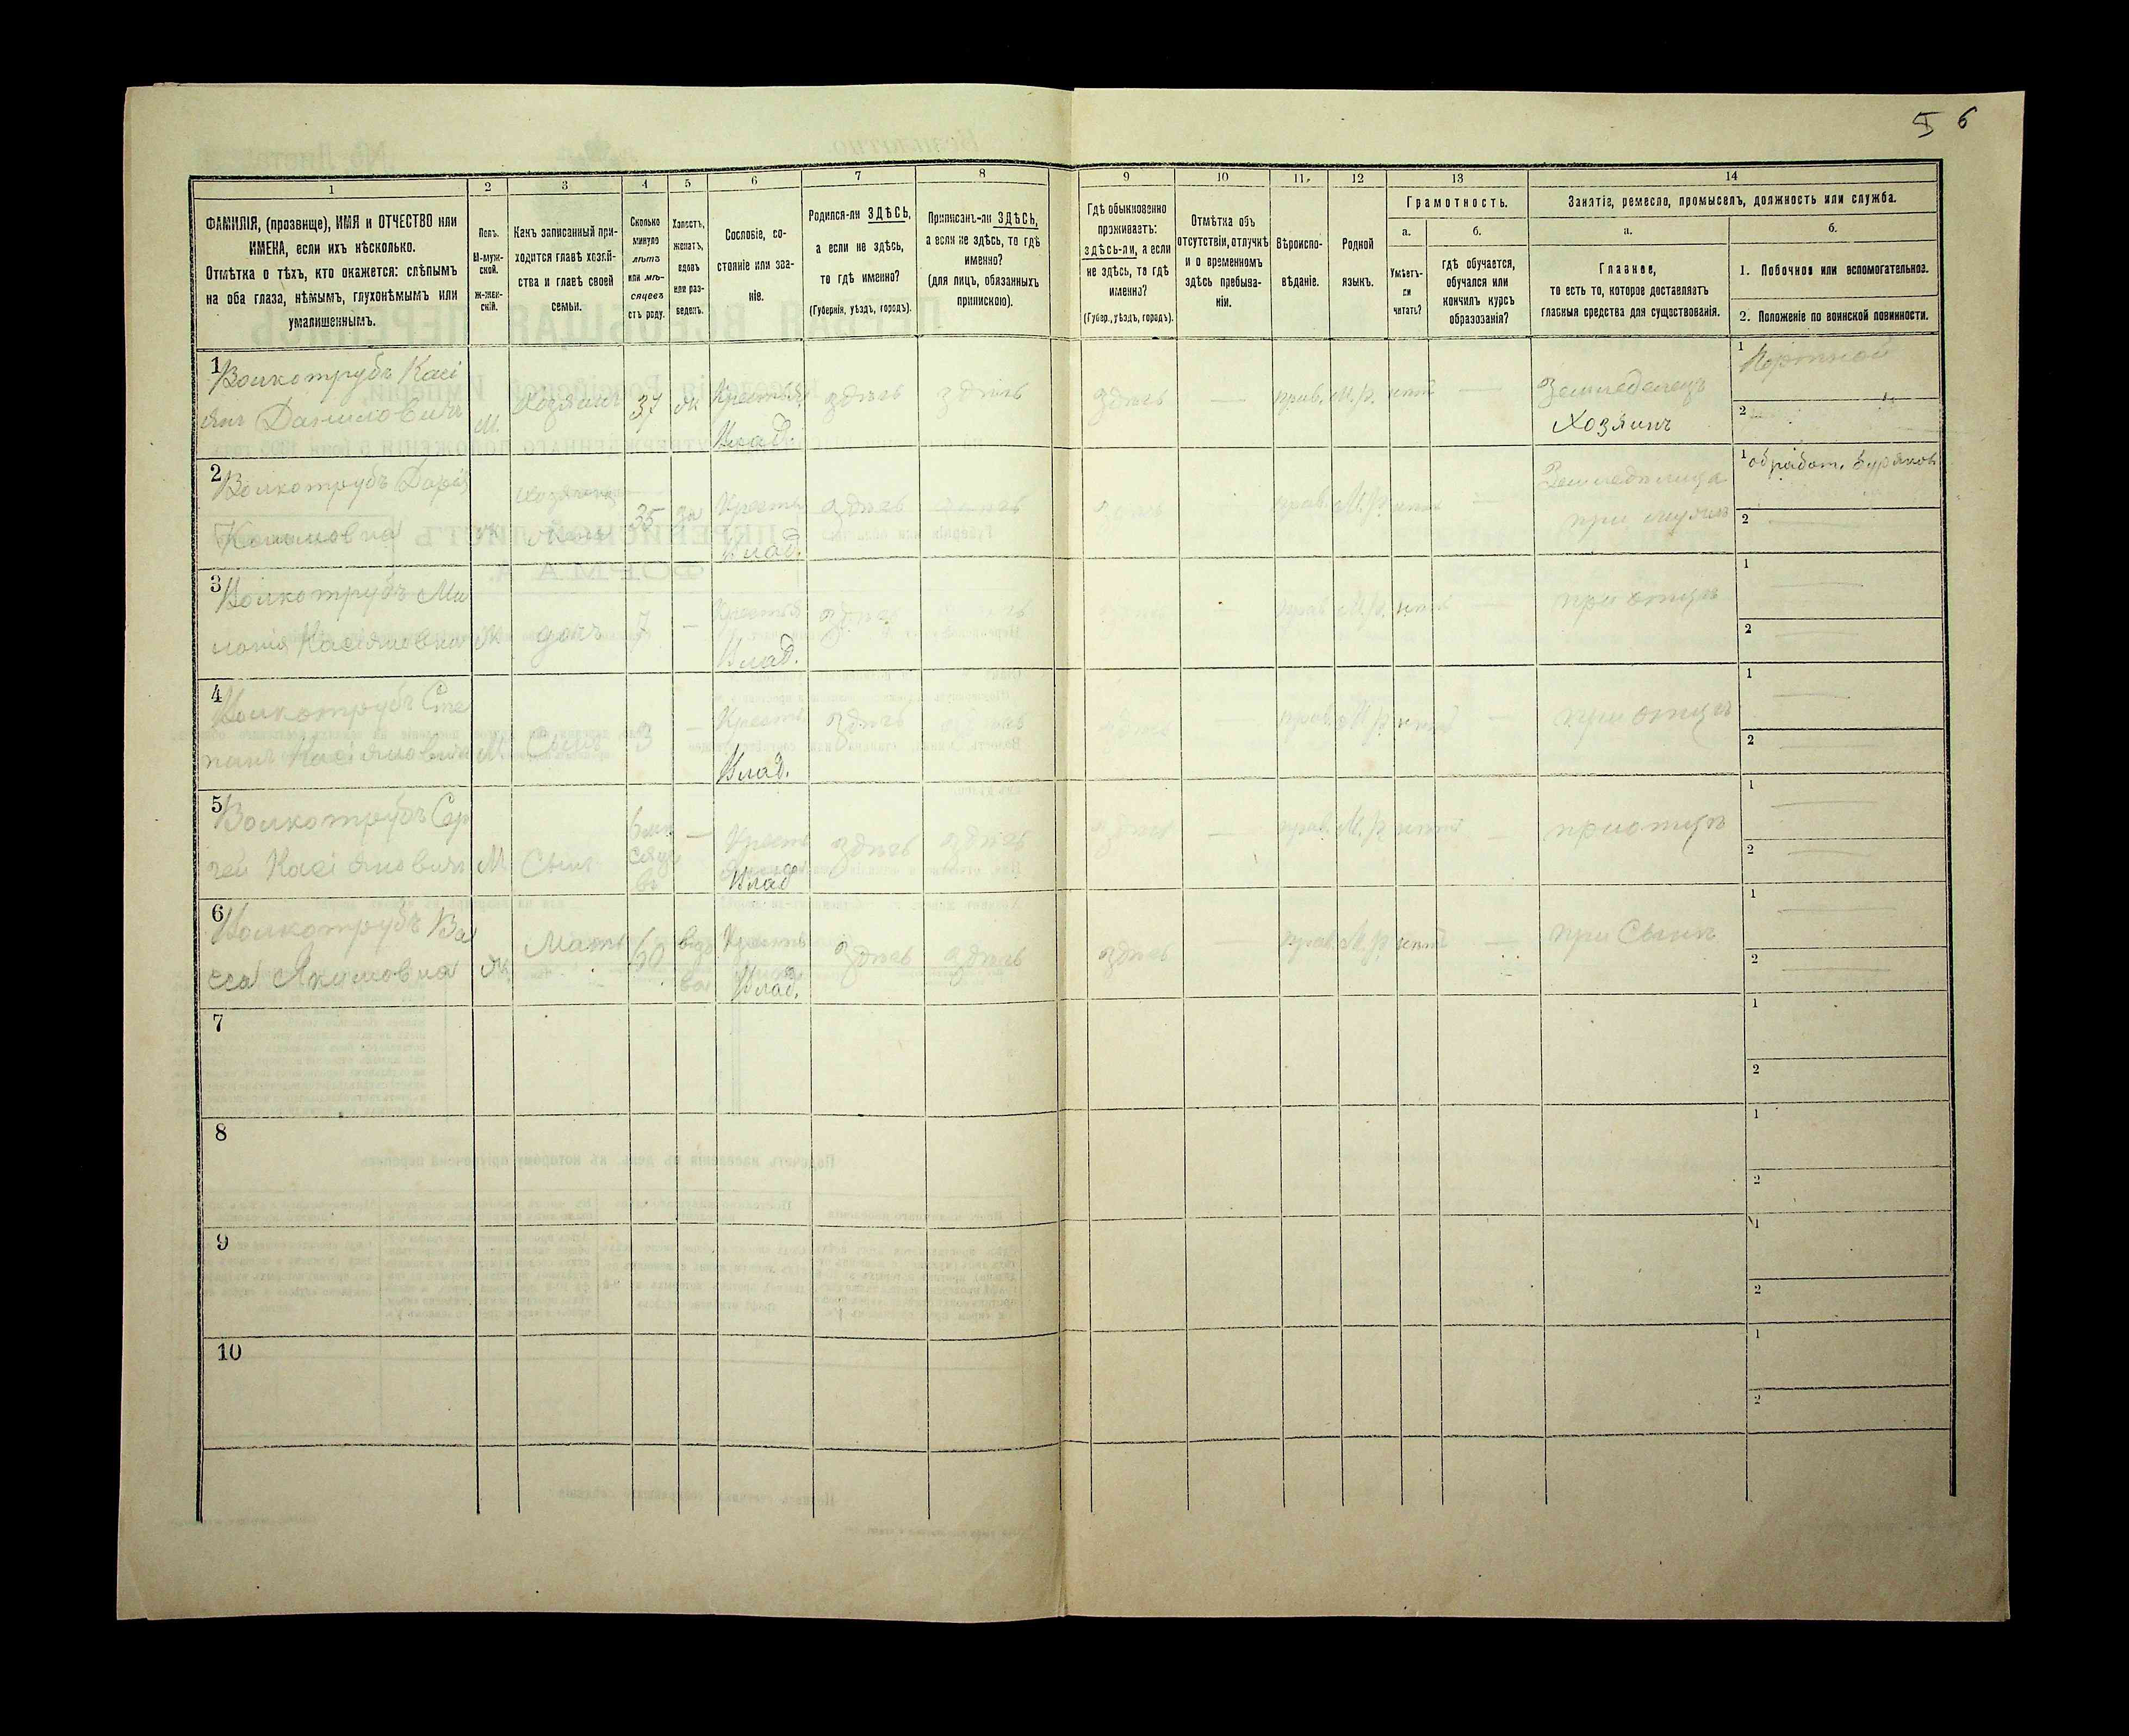 5 6
1 2 3 4 5 6 7 8 9 10 11. 12 13 14
ФАМИЛІЯ, (прозвище), ИМЯ и ОТЧЕСТВО или
ИМЕНА, если ихъ нѣсколько.
Отмѣтка о тѣхъ, кто окажется: слѣпымъ
на оба глаза, нѣмымъ, глухонѣмымъ или
умалишеннымъ.
Полъ.
М-муж-
ской.
ж-жен-
скій.
Какъ записанный при-
ходится главѣ хозяй-
ства и главѣ своей
семьи.
Сколько
минуло
лѣтъ
или мѣ-
сяцевъ
отъ роду.
Холостъ,
женатъ,
вдовъ
или раз-
веденъ.
Сословіе, со-
стояніе или зва-
ніе.
Родился-ли ЗДѢСЬ,
а если не здѣсь,
то гдѣ именно?
(Губернія, уѣздъ, городъ).
Приписанъ-ли ЗДѢСЬ,
а если не здѣсь, то гдѣ
именно?
(для лицъ, обязанныхъ
припискою).
Гдѣ обыкновенно
проживаетъ:
здѣсь-ли, а если
не здѣсь, то гдѣ
именно?
(Губер., уѣздъ, городъ).
Отмѣтка объ
отсутствіи, отлучкѣ
и о временномъ
здѣсь пребыва-
ніи.
Вѣроиспо-
вѣданіе.
Родной
языкъ.
Грамотность.
а.
Умѣетъ-
ли
читать?
б.
гдѣ обучается,
обучался или
кончилъ курсъ
образованія?
Занятіе, ремесло, промыселъ, должность или служба.
а.
Главное,
то есть то, которое доставляетъ
главныя средства для существованія.
б.
1. Побочное или вспомогательное.
2. Положеніе по воинской повинности.
1 Волкотрубъ Касі
янъ Даниловичъ М. Хозяинъ 37 Ж Крестья Влад. здѣсь здѣсь здѣсь — прав. М.р. нѣтъ — Земледелецъ Хозяинъ 1 Портной 2
2 Волкотрубъ Дарія
ж жена 35 за Кресть Влад. здѣсь здѣсь здѣсь — прав. М.р. нѣтъ — при мужѣ 1 обработ. буряков 2
3 Волкотрубъ Ми
Касіяновна Ж дочь 7 — Крестья Влад. здѣсь — прав. М.р. нѣтъ — при отцѣ 1 — 2 —
4 Волкотрубъ Сте
панъ Касіяновичъ М. Сынъ 3 — Кресть Влад. здѣсь здѣсь здѣсь — прав. М.р. нѣтъ — при отцѣ 1 — 2 —
5 Волкотрубъ Сер
гей Касіяновичъ М. Сынъ 6 мѣ сяце въ — Кресть Влад здѣсь здѣсь здѣсь — прав. М.р. нѣтъ — при отцѣ 1 — 2 —
6 Волкотрубъ Ва
сса Якимовна Ж. Мать 60 вдо ва Кресть Влад. здѣсь здѣсь здѣсь — прав. М.р. нѣтъ — при Сынѣ 1 — 2 —
7 1 2
8 1 2
9 1 2
10 1 2